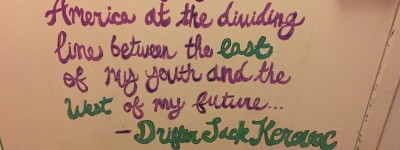 America at the dividing
line between the east
of my youth and the
West of my future...
- Drifter Jack Kerouac